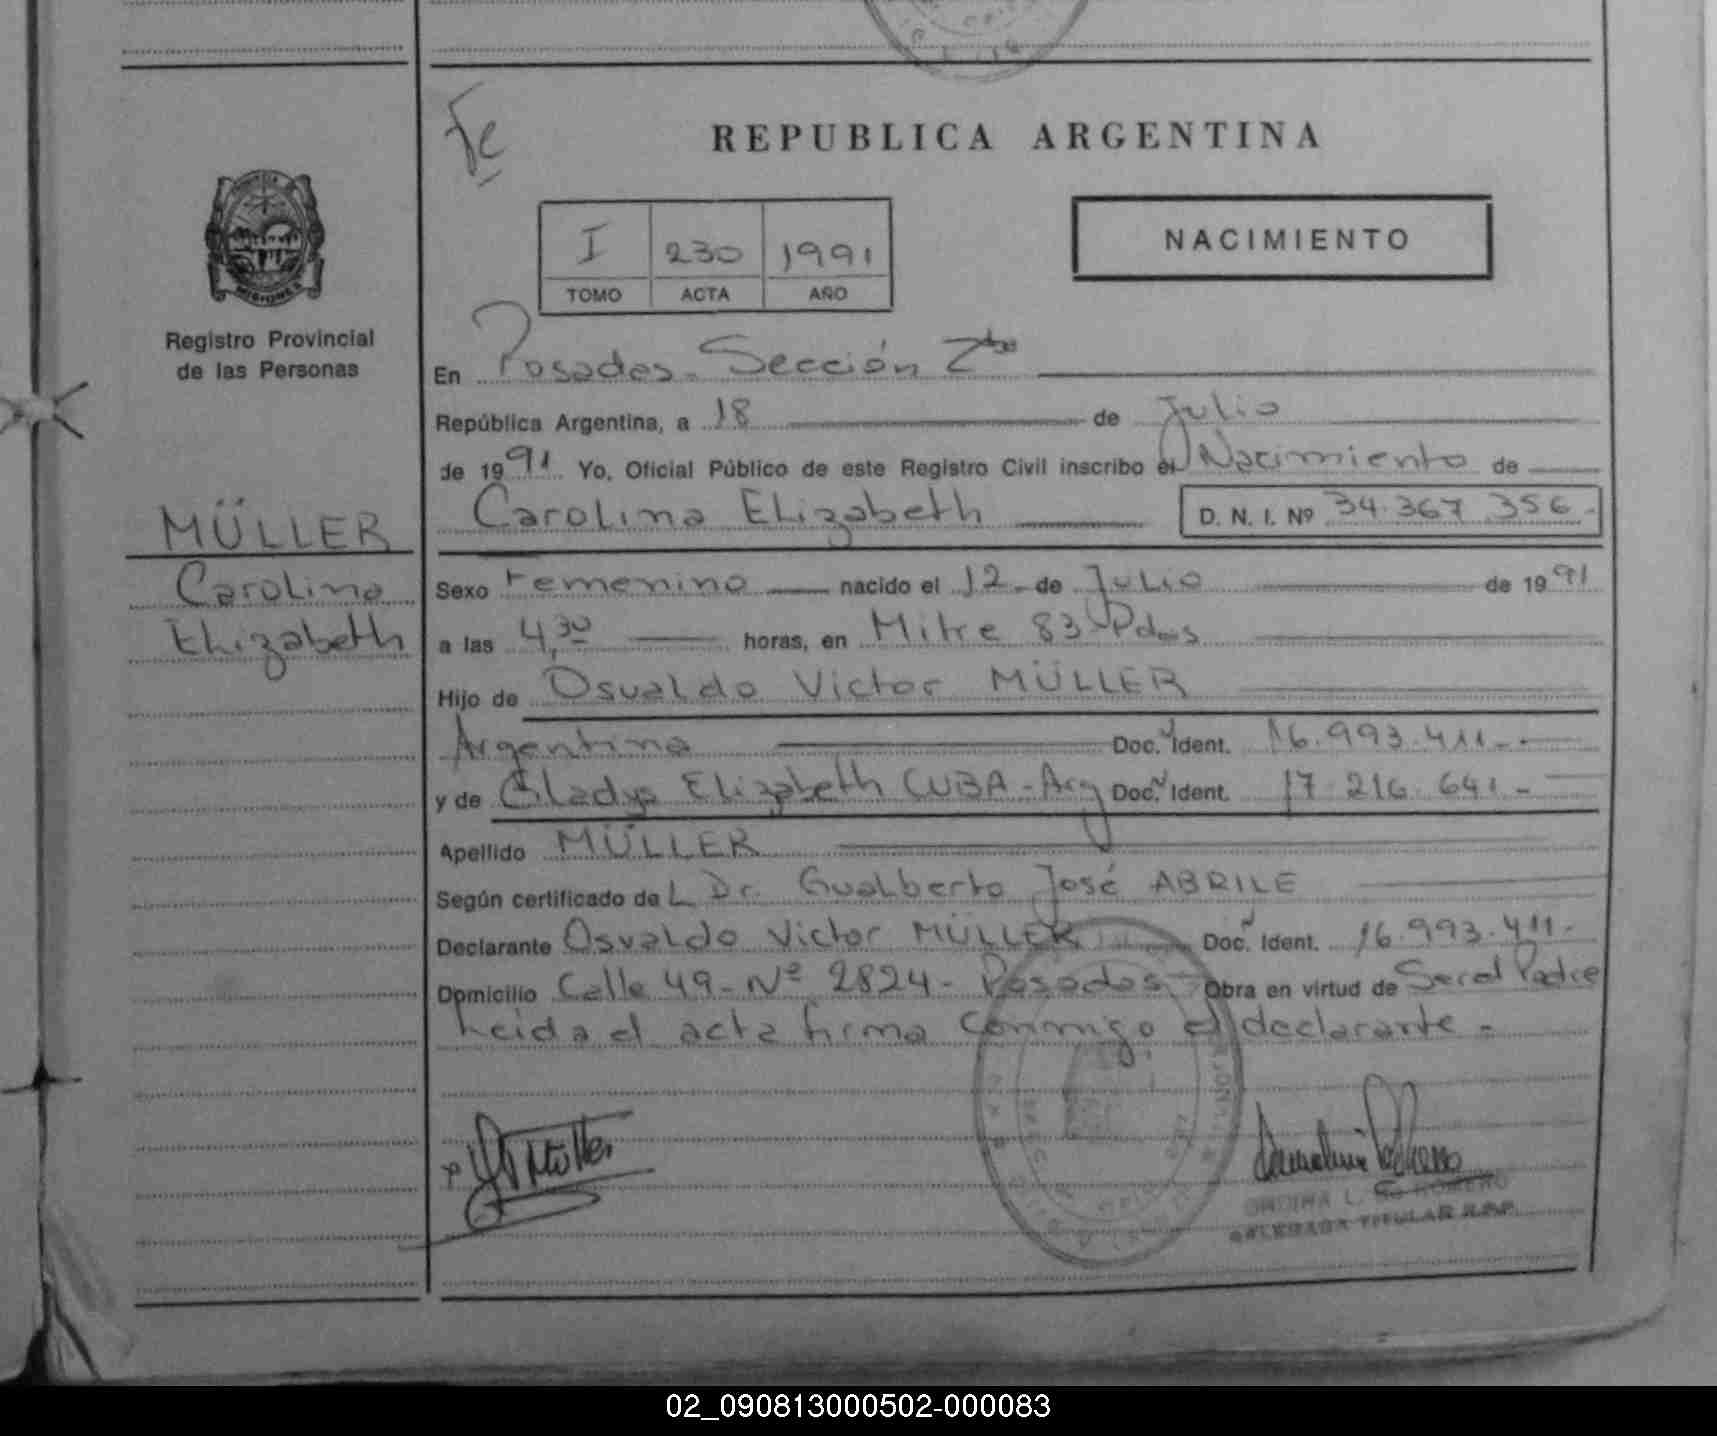 Fe
REPUBLICA ARGENTINA
I 230 1991
TOMO ACTA AÑO
NACIMIENTO
MISIONES
Registro Provincial
de las Personas
En Posadas - Sección 2
República Argentina, a 18 de Julio
de 1991 Yo, Oficial Público de este Registro Civil inscribo el Nacimiento de
Carolina Elizabeth D. N. I. Nº 34.367.356-
MÜLLER
Carolina
Elizabeth
Sexo Femenino nacido el 12 - de Julio de 1991
a las 4,30 horas, en Mitre 83 - Pdas
Hijo de Osvaldo Victor MÜLLER
Argentina Doc. Ident. 16.993.411.-
y de Gladys Elizabeth CUBA - Arg Doc. Ident. 17.216.641.-
Apellido MÜLLER
Según certificado del Dr. Gualberto José ABRILE
Declarante Osvaldo Victor MÜLLER Doc. Ident. 16.993.411.-
Domicilio Calle 49 - Nº 2824 - Posadas - Obra en virtud de Ser el Padre
Leida el acta firma conmigo el declarante -
Müller
ROMERO
DELEGADA TITULAR R.P.P.
02_090813000502-000083